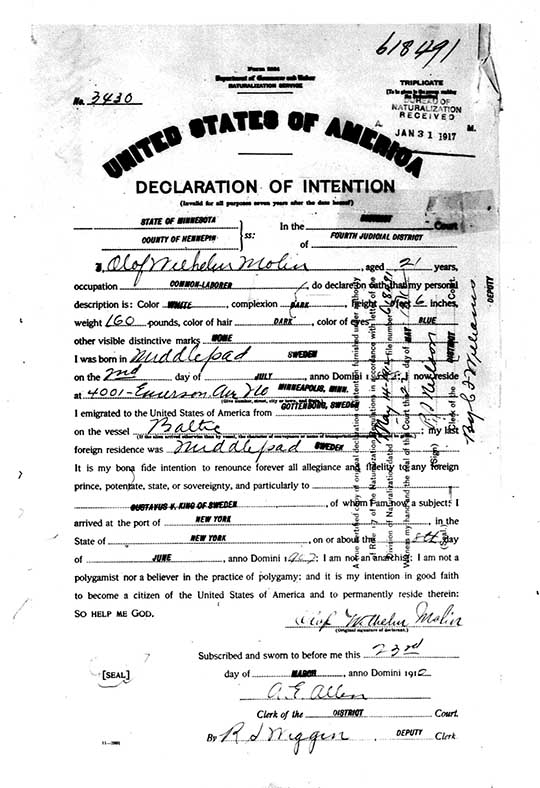 618491
Form 2201
Department of Commerce and Labor
NATURALIZATION SERVICE
No. 3430
TRIPLICATE
BUREAU OF
NATURALIZATION
RECEIVED
A JAN 31 1917 M.
UNITED STATES OF AMERICA
DECLARATION OF INTENTION
(Invalid for all purposes seven years after the date hereof)
STATE OF MINNESOTA
COUNTY OF HENNEPIN
ss:
In the DISTRICT Court
of FOURTH JUDICIAL DISTRICT
I, Olof Wilhelm Molin, aged 21 years,
occupation COMMON-LABORER, do declare on oath that my personal
description is: Color WHITE, complexion DARK, height feet 6 inches,
weight 160 pounds, color of hair DARK, color of eyes BLUE
other visible distinctive marks NONE
I was born in Middlepad SWEDEN
on the 2nd day of JULY, anno Domini 1 ; I now reside
at 4001-Emerson Av No MINNEAPOLIS, MINN.
(Give number, street, city or town, and State.)
I emigrated to the United States of America from GOTTENBORG, SWEDEN
on the vessel Baltic ; my last
(If the alien arrived otherwise than by vessel, the character of conveyance or name of transportation
foreign residence was Middlepad SWEDEN
It is my bona fide intention to renounce forever all allegiance and fidelity to any foreign
prince, potentate, state, or sovereignty, and particularly to
GUSTAVUS V. KING OF SWEDEN, of whom I am now a subject; I
arrived at the port of NEW YORK, in the
State of NEW YORK, on or about the 8th day
of JUNE, anno Domini 190 ; I am not an anarchist; I am not a
polygamist nor a believer in the practice of polygamy; and it is my intention in good faith
to become a citizen of the United States of America and to permanently reside therein:
SO HELP ME GOD.
Olof Wilhelm Molin
(Original signature of declarant.)
Subscribed and sworn to before me this 23rd
[SEAL]
day of MARCH, anno Domini 1912
A. E. Allen
Clerk of the DISTRICT Court.
By R I Wiggin DEPUTY Clerk.
11-2601
Clerk of the DISTRICT Court
DEPUTY